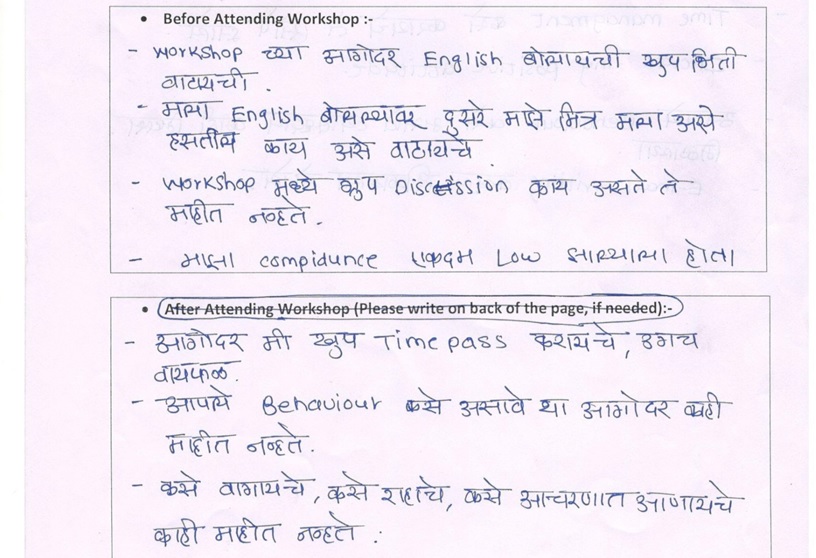 • Before Attending Workshop :-
- workshop च्या आगोदर English बोलायची खुप भिती
वाटायची .
- मला English बोलल्यावर दुसरे माझे मित्र मला असे
हसतील काय असे वाठायचे .
- workshop मध्ये ग्रुप Discussion काय असते ते
माहीत नव्हते .
- माझा compidunce एकदम Low झाल्याला होता
• After Attending Workshop (Please write on back of the page, if needed):-
- आगोदर मी खुप Time pass करायचे , उगच
वायफळ .
- आपले Behaviour कसे असावे या आगोदर काही
माहीत नव्हते .
- कसे वागायचे , कसे राहाचे , कसे आचरणात आणायचे
काही माहीत नव्हते .